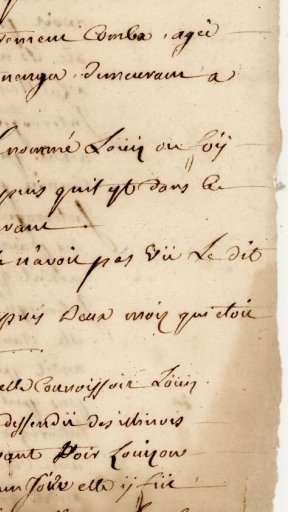 vement Comba, agée
nenga, demeurant a
nommé Loüis ou
puis quil yt dans le
vant.
n'avoit pas Vü Le dit
puis Deux mois qui etoit
elle Connoissoit Loüis
deffendü des illinois
ant Voir Louison
un Jour elle y füt